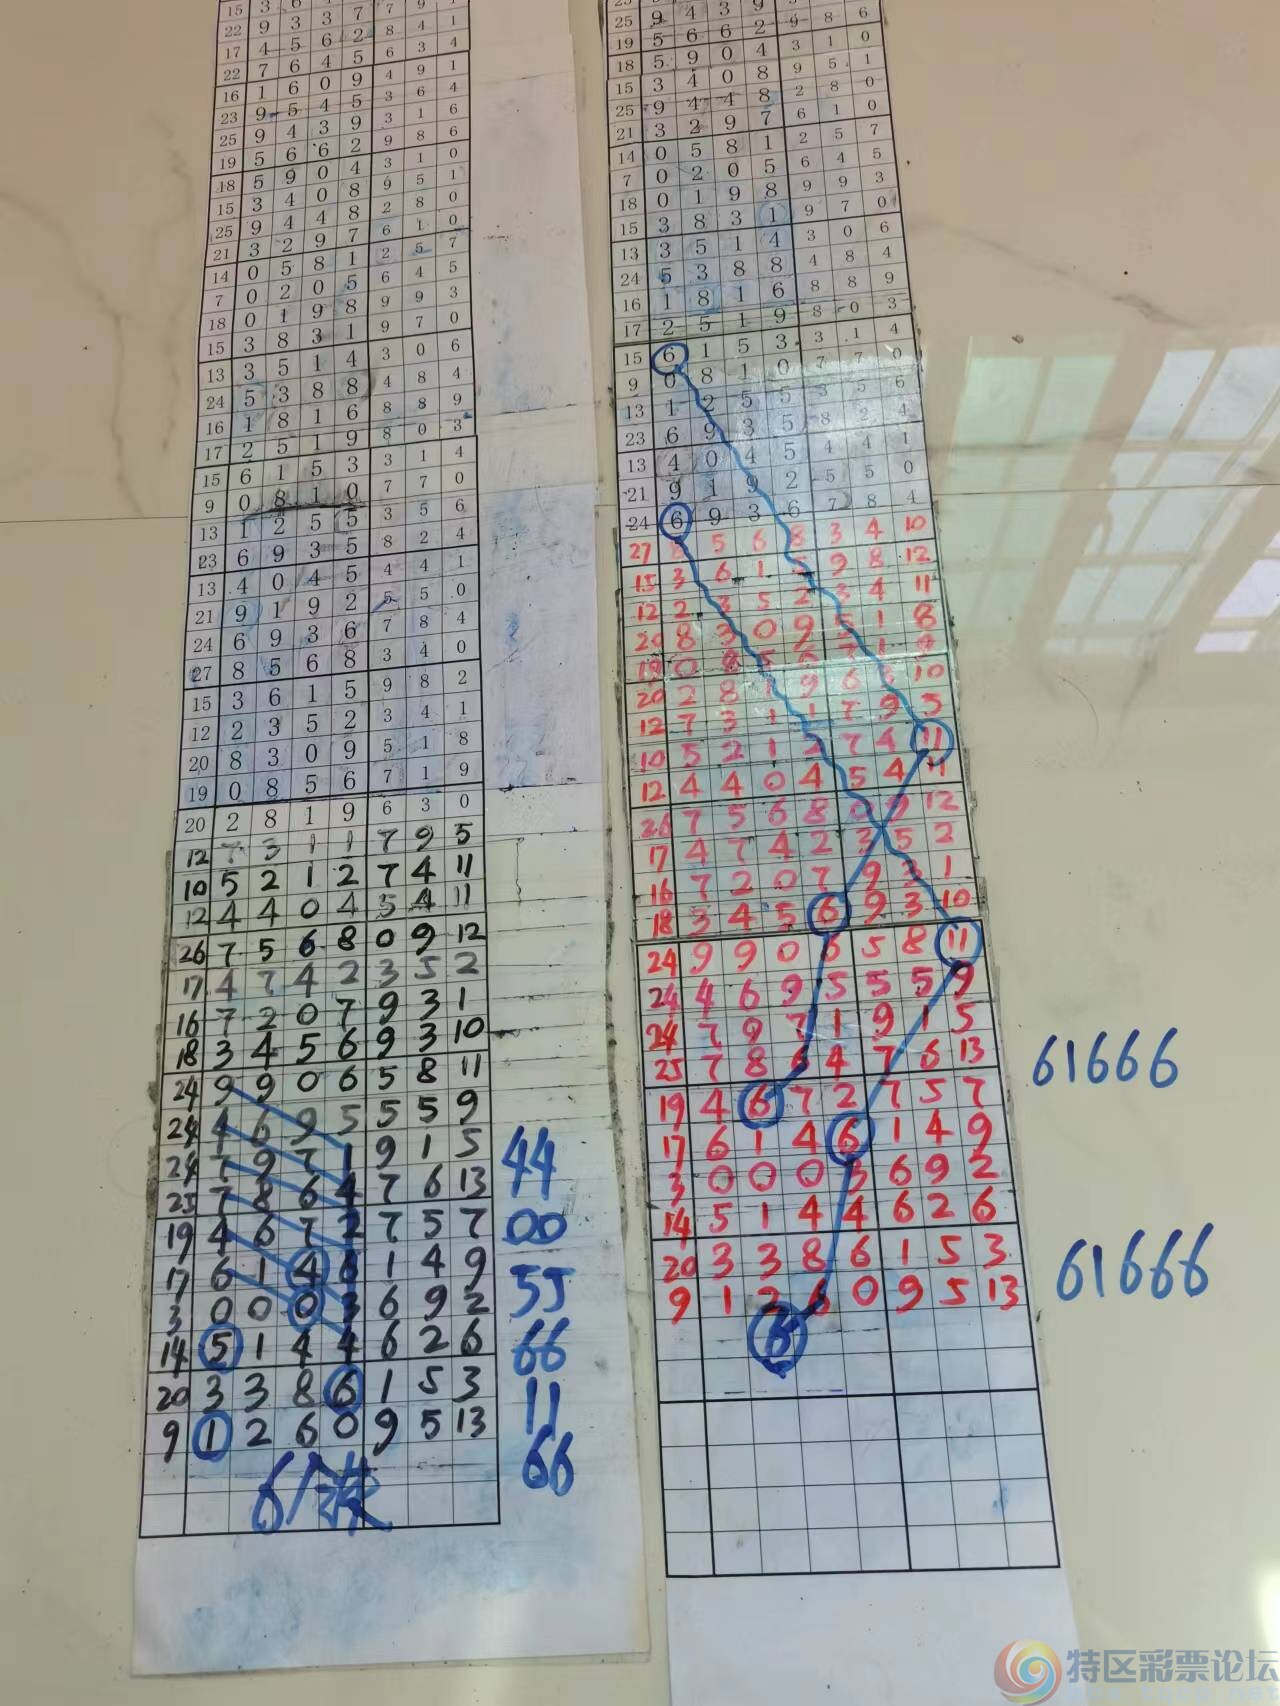 22 9 3 3 7 7 9 1
17 4 5 6 2 8 4 1
22 7 6 4 5 6 3 4
16 1 6 0 9 4 9 1
23 9 5 4 5 3 6 4
25 9 4 3 9 3 1 6
19 5 6 6 2 9 8 6
18 5 9 0 4 3 1 0
15 3 4 0 8 9 5 1
25 9 4 4 8 2 8 0
21 3 2 9 7 6 1 0
14 0 5 8 1 2 5 7
7 0 2 0 5 6 4 5
18 0 1 9 8 9 9 3
15 3 8 3 1 9 7 0
13 3 5 1 4 3 0 6
24 5 3 8 8 4 8 4
16 1 8 1 6 8 8 9
17 2 5 1 9 8 0 3
15 6 1 5 3 3 1 4
9 0 8 1 0 7 7 0
13 1 2 5 5 3 5 6
23 6 9 3 5 8 2 4
13 4 0 4 5 4 4 1
21 9 1 9 2 5 5 0
24 6 9 3 6 7 8 4
27 8 5 6 8 3 4 0
15 3 6 1 5 9 8 2
12 2 3 5 2 3 4 1
20 8 3 0 9 5 1 8
19 0 8 5 6 7 1 9
20 2 8 1 9 6 3 0
12 7 3 1 1 7 9 5
10 5 2 1 2 7 4 11
12 4 4 0 4 5 4 11
26 7 5 6 8 0 9 12
17 4 7 4 2 3 5 2
16 7 2 0 7 9 3 1
18 3 4 5 6 9 3 10
24 9 9 0 6 5 8 11
24 4 6 9 5 5 5 9
24 7 9 7 1 9 1 5
25 7 8 6 4 7 6 13
19 4 6 7 2 7 5 7
17 6 1 4 6 1 4 9
3 0 0 0 3 6 9 2
14 5 1 4 4 6 2 6
20 3 3 8 6 1 5 3
9 1 2 6 0 9 5 13
44
00
55
66
11
66
25 9 4 3 9
19 5 6 6 2 9 8 6
18 5 9 0 4 3 1 0
15 3 4 0 8 9 5 1
25 9 4 4 8 2 8 0
21 3 2 9 7 6 1 0
14 0 5 8 1 2 5 7
7 0 2 0 5 6 4 5
18 0 1 9 8 9 9 3
15 3 8 3 1 9 7 0
13 3 5 1 4 3 0 6
24 5 3 8 8 4 8 4
16 1 8 1 6 8 8 9
17 2 5 1 9 8 0 3
15 6 1 5 3 3 1 4
9 0 8 1 0 7 7 0
13 1 2 5 5 3 5 6
23 6 9 3 5 8 2 4
13 4 0 4 5 4 4 1
21 9 1 9 2 5 5 0
24 6 9 3 6 7 8 4
27 8 5 6 8 3 4 10
15 3 6 1 5 9 8 12
12 2 3 5 2 3 4 11
20 8 3 0 9 5 1 8
19 0 8 5 6 7 1 9
20 2 8 1 9 6 3 10
12 7 3 1 1 7 9 5
10 5 2 1 2 7 4 11
12 4 4 0 4 5 4 11
26 7 5 6 8 0 9 12
17 4 7 4 2 3 5 2
16 7 2 0 7 9 3 1
18 3 4 5 6 9 3 10
24 9 9 0 6 5 8 11
24 4 6 9 5 5 5 9
24 7 9 7 1 9 1 5
25 7 8 6 4 7 6 13
19 4 6 7 2 7 5 7
17 6 1 4 6 1 4 9
3 0 0 0 3 6 9 2
14 5 1 4 4 6 2 6
20 3 3 8 6 1 5 3
9 1 2 6 0 9 5 13
6
61666
61666
特区彩票论坛